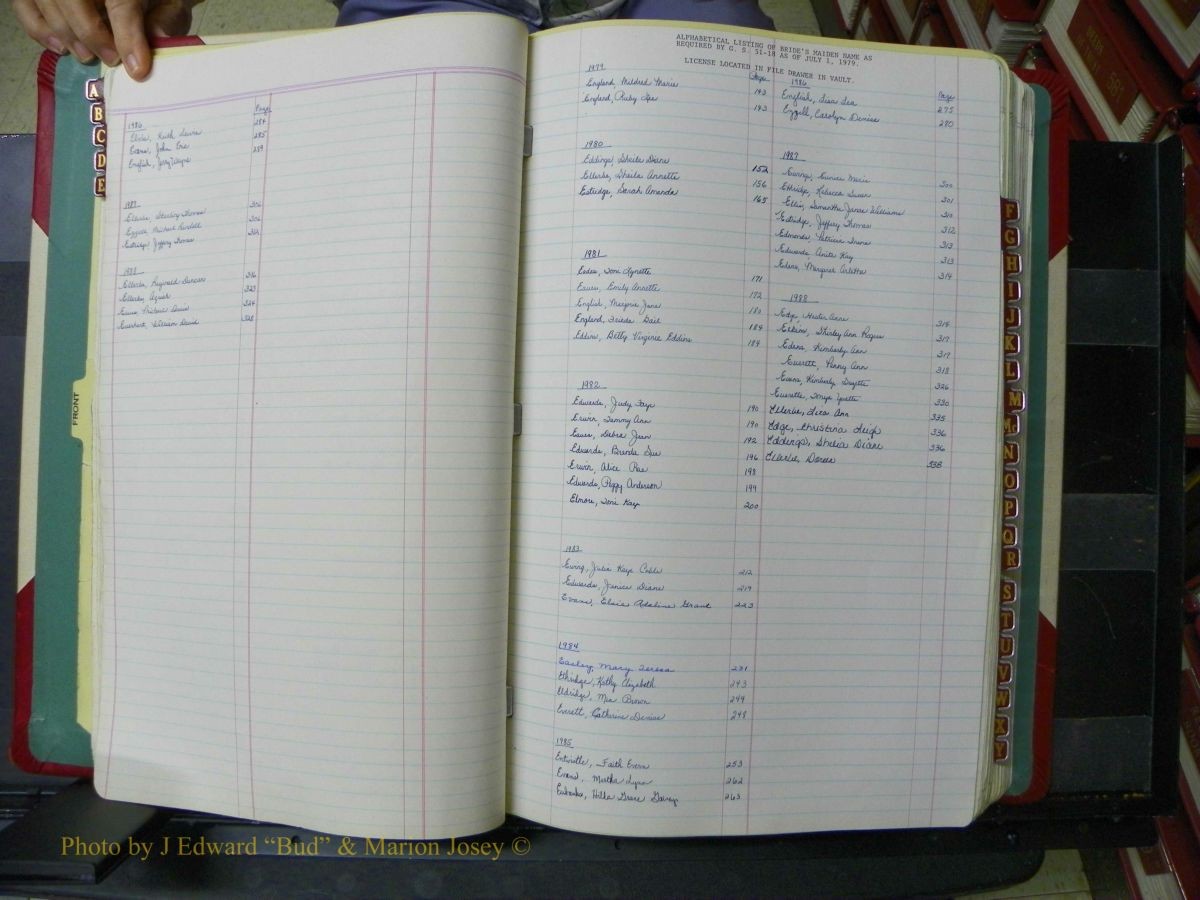 Page
1986
Elvis, Keith Lewis 284
Evans, John Eric 285
English, Jerry Wayne 289
1987
Ellerbe, Sterling Thomas 306
Ezzell, Michael Randall 306
Estridge, Jeffery Thomas
1988
Ellerbe, Reginald Duncan 316
Ellerbe, 323
Michael Davis 324
Everhart, William David 328
FRONT
A
B
C
D
E
ALPHABETICAL LISTING OF BRIDE'S MAIDEN NAME AS
REQUIRED BY G. S. 51-18 AS OF JULY 1, 1979.
LICENSE LOCATED IN FILE DRAWER IN VAULT.
1979 Page
England Mildred Marie 143
England, Ruby 143
1980
Eddings, Sheila Diane 152
Ellerbe, Sheila Annette 156
Estridge, Sarah Amanda 165
1981
Toni Lynette 171
Emily Annette 172
English, Marjorie Jane 180
England, Frieda Gail 184
Eddins, Betty Virginia Eddins 184
1982
Edwards, Judy Faye 190
Erwin, Tammy Ann 190
Debra Jean 192
Edwards, Brenda Sue 196
Erwin, Alice Rae 198
Edwards, Peggy Anderson 199
Elmore, Toni Kay 200
1983
Ewing, Julia Kaye Coble 212
Edwards, Janice Diane 219
Evans, Elsie Adaline Grant 223
1984
Easley, Mary Teresa 231
Ethridge, Kathy Elizabeth 243
Eldridge, Mia Brown 244
Everett, Catherine Denise 248
1985
Entwistle, Faith 253
Evans, Martha Lynn 262
Eubanks, Hilda Grace Gainey 265
1986 Page
English, Lisa 275
Ezzell, Carolyn Denise 280
1987
Eunice Marie 300
Ethridge, Rebecca Susan 301
Ellis, Samantha Janae Williams 310
Estridge, Jeffery Thomas 312
Edmonds, Patricia Irene 313
Edwards Anita Kay 313
Edens, Margaret Arletta 314
1988
Edge, Hester Anne 314
Elkins, Shirley Ann Rogers 317
Edens, Kimberly Ann 317
Everett, Penny Ann 318
Evans, Kimberly 326
Everette, Yvette 330
Ellerbe, Lisa Ann 335
Edge, Christina Leigh 336
Eddings, Shelia Diane 336
Ellerbe Doreen 338
F
G
H
I
J
K
L
M
Mc
N
O
P
Q
R
S
T
U
V
W
X
Y
DEEDS
561
Photo by J Edward “Bud” & Marion Josey ©